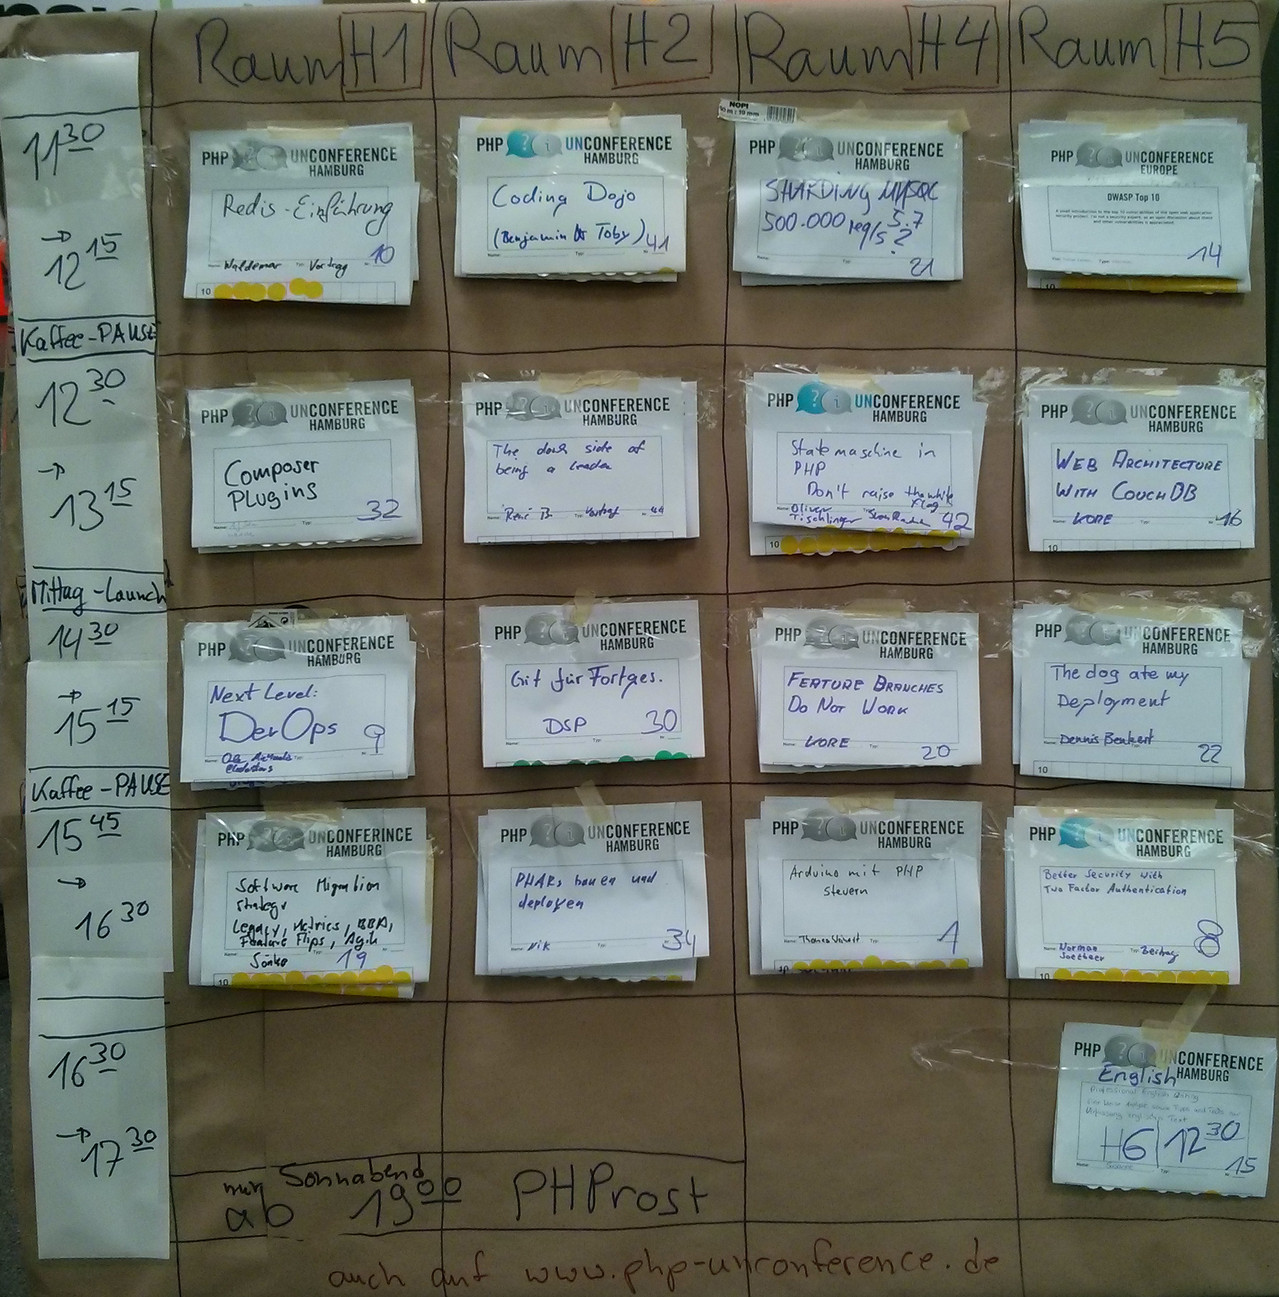 Raum H1
Raum H2
Raum H4
Raum H5
11 30
→ 12 15
PHP ? i UNCONFERENCE
HAMBURG
Redis-Einführung
Waldemar Vortrag 10
10
PHP ? i UNCONFERENCE
HAMBURG
Coding Dojo
(Benjamin & Toby) 41
NOPI
PHP ? i UNCONFERENCE
HAMBURG
SHARDING MYSQL
5.7
500.000 req/s ?
21
PHP ? i UNCONFERENCE
EUROPE
OWASP Top 10
14
Kaffee-PAUSE
12 30
→ 13 15
PHP ? i UNCONFERENCE
HAMBURG
Composer
Plugins
32
PHP ? i UNCONFERENCE
HAMBURG
The dark side of
being a leader
René B. Vortrag 44
PHP ? i UNCONFERENCE
HAMBURG
Statemaschine in
PHP
Don't raise the white
flag
Oliver
Tischlinger 42
10
PHP ? i UNCONFERENCE
HAMBURG
WEB ARCHITECTURE
WITH COUCHDB
KORE 16
10
Mittag-Launch
14 30
→ 15 15
PHP ? i UNCONFERENCE
HAMBURG
Next Level:
DevOps 9
PHP ? i UNCONFERENCE
HAMBURG
Git für Fortges.
DSP 30
PHP ? i UNCONFERENCE
HAMBURG
FEATURE BRANCHES
DO NOT WORK
KORE 20
PHP ? i UNCONFERENCE
HAMBURG
The dog ate my
Deployment
Dennis Benkert 22
10
Kaffee-PAUSE
15 45
→ 16 30
PHP ? i UNCONFERINCE
HAMBURG
Software Migration
Strategy
Legacy, Metrics, BBA,
Feature Flips, Agile
Sönke 19
10
PHP ? i UNCONFERENCE
HAMBURG
PHARs bauen und
deployen
Nik 34
PHP ? i UNCONFERENCE
HAMBURG
Arduino mit PHP
steuern
1
PHP ? i UNCONFERENCE
HAMBURG
Better Security with
Two Factor Authentication
Norman
Soetbeer Beitrag 8
10
16 30
→ 17 30
PHP ? i UNCONFERENCE
HAMBURG
English
H6 | 12 30
15
nur Sonnabend
ab 19 00 PHProst
auch auf www.php-unconference.de